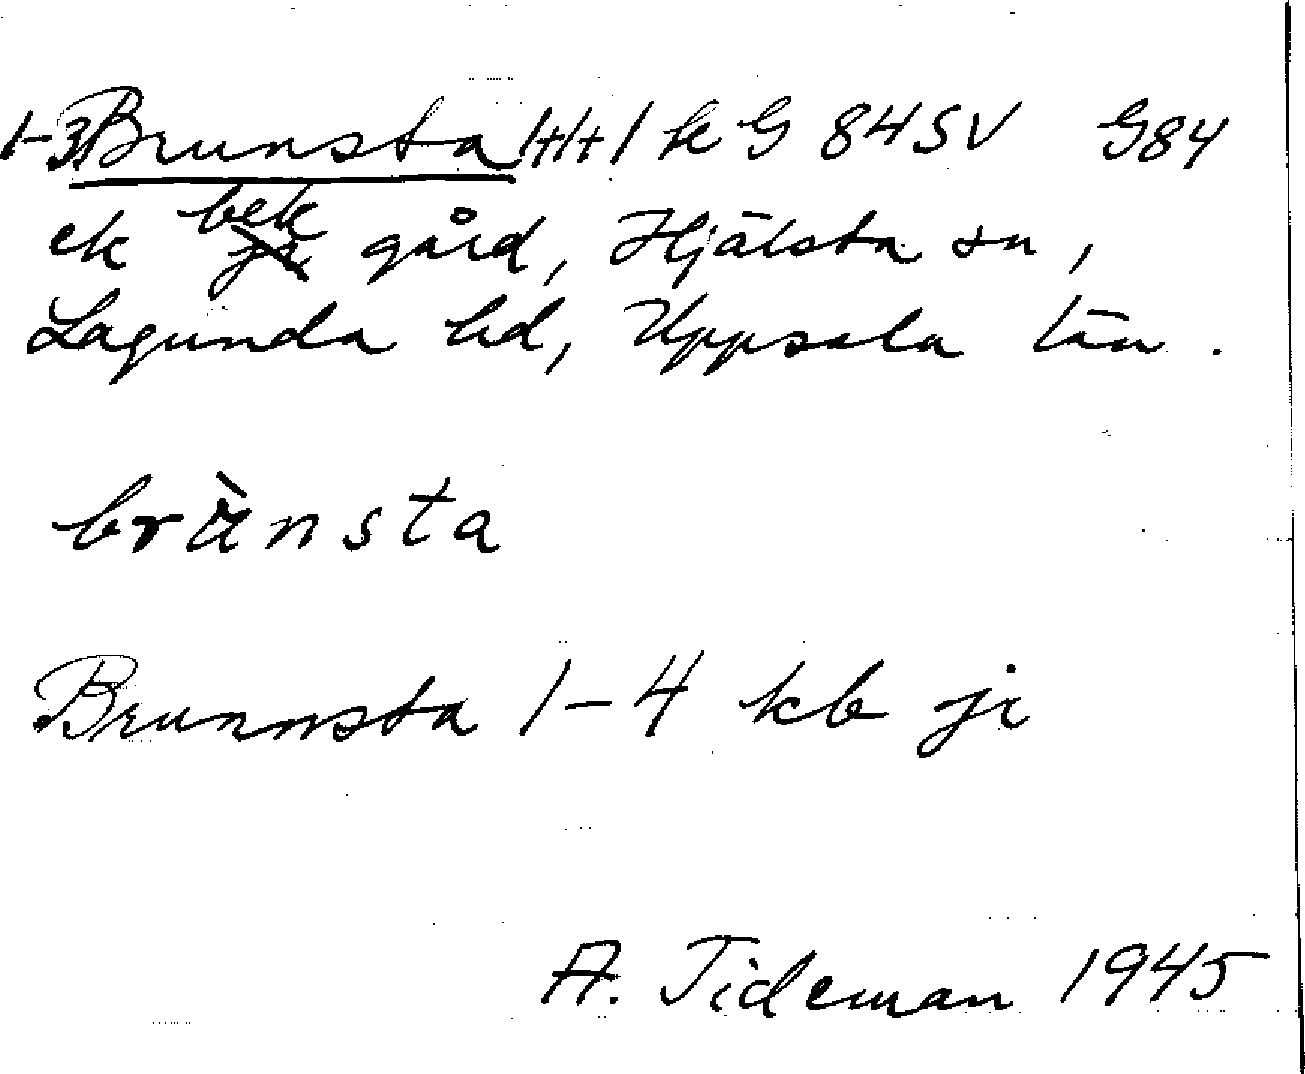 1-3 Brunsta 1+1+1 k G 84 SV G84
ek bek gård, Hjälsta sn,
Lagunda hd, Uppsala län.
brùnsta
Brunnsta 1-4 kb ji
A. Tideman 1945